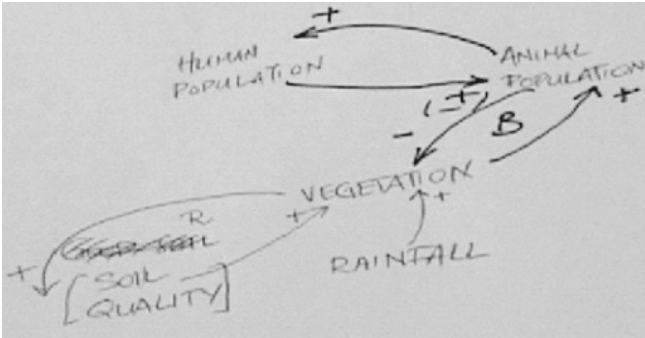 +
HUMAN
POPULATION
ANIMAL
POPULATION
+
(-+)
-
B
VEGETATION
+
+
R
+
[SOIL
QUALITY]
RAINFALL